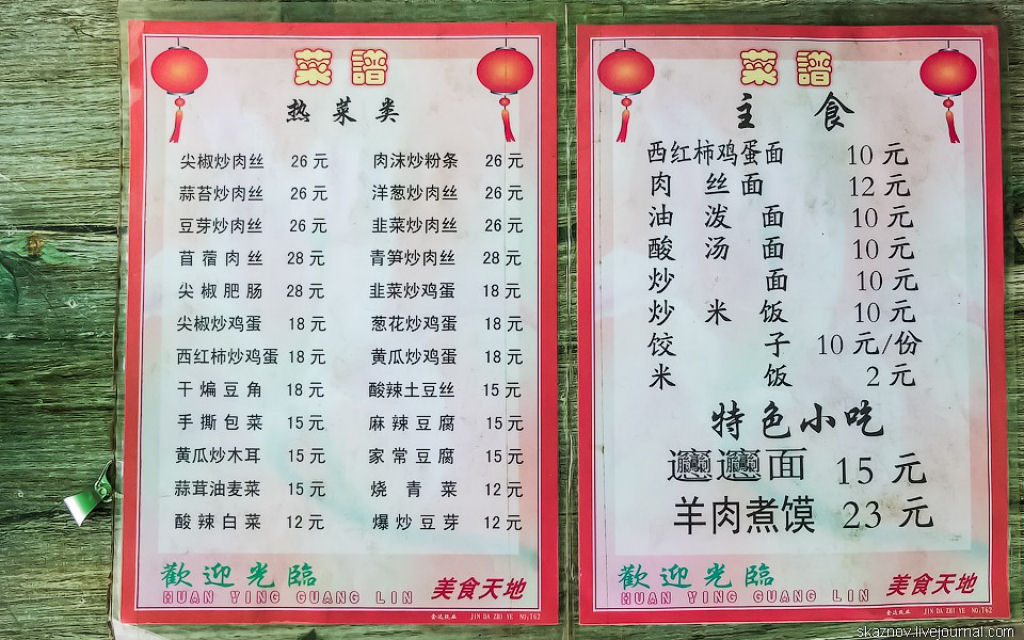 菜譜
热菜类
尖椒炒肉丝 26元 肉沫炒粉条 26元
蒜苔炒肉丝 26元 洋葱炒肉丝 26元
豆芽炒肉丝 26元 韭菜炒肉丝 26元
苜蓿肉丝 28元 青笋炒肉丝 28元
尖椒肥肠 28元 韭菜炒鸡蛋 18元
尖椒炒鸡蛋 18元 葱花炒鸡蛋 18元
西红柿炒鸡蛋 18元 黄瓜炒鸡蛋 18元
干煸豆角 18元 酸辣土豆丝 15元
手撕包菜 15元 麻辣豆腐 15元
黄瓜炒木耳 15元 家常豆腐 15元
蒜茸油麦菜 15元 烧青菜 12元
酸辣白菜 12元 爆炒豆芽 12元
歡迎光臨
HUAN YING GUANG LIN
美食天地
金达纸业 JIN DA ZHI YE NO:T62
菜譜
主食
西红柿鸡蛋面 10元
肉丝面 12元
油泼面 10元
酸汤面 10元
炒面 10元
炒米饭 10元
饺子 10元/份
米饭 2元
特色小吃
𰻞𰻞面 15元
羊肉煮馍 23元
歡迎光臨
HUAN YING GUANG LIN
美食天地
金达纸业 JIN DA ZHI YE NO:T62
skaznov.livejournal.com